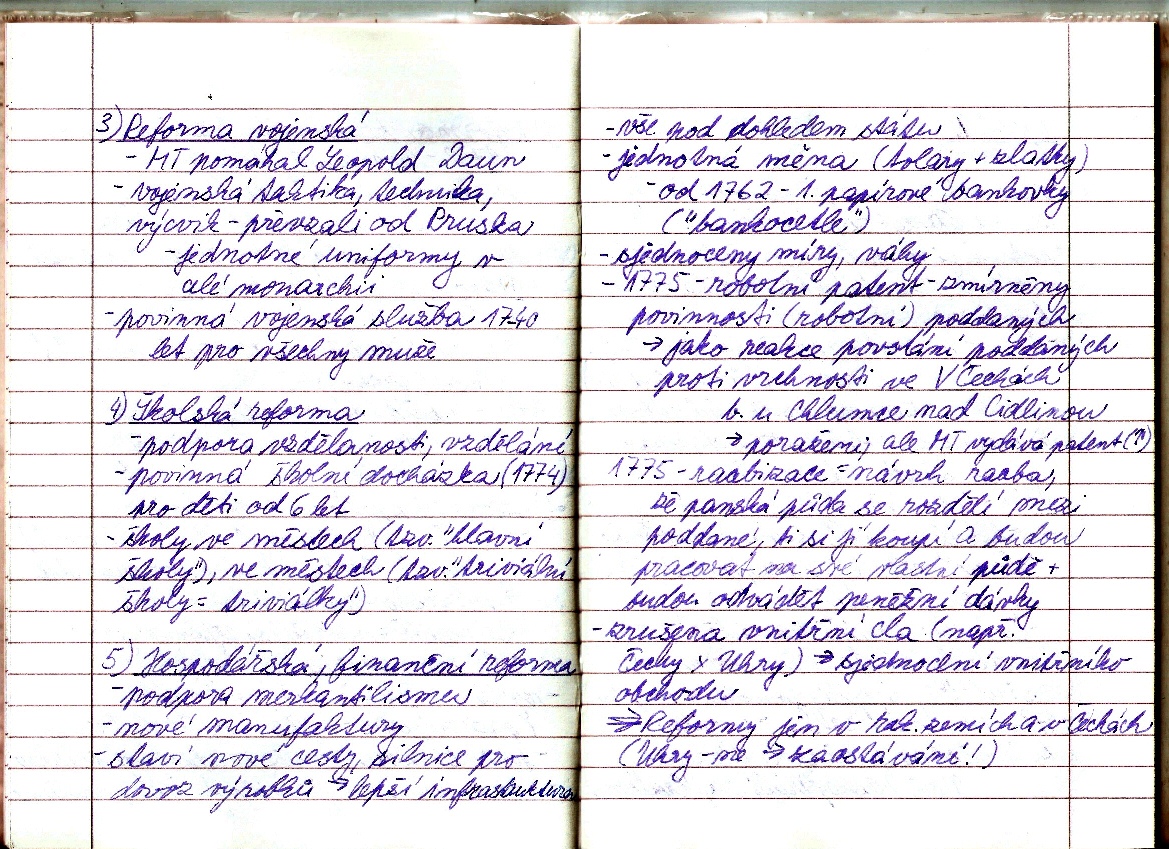 3) Reforma vojenská
- MT pomáhal Leopold Daun
- vojenská taktika, technika,
výcvik - převzali od Pruska
- jednotné uniformy v
celé monarchii
- povinná vojenská služba 1740
let pro všechny muže
4) Školská reforma
- podpora vzdělanosti, vzdělání
- povinná školní docházka (1774)
pro děti od 6 let
- školy ve městech (tzv. "hlavní
školy"), ve městech (tzv. "triviální
školy = triviálky")
5) Hospodářská, finanční reforma
- podpora merkantilismu
- nové manufaktury
- staví nové cesty, silnice pro
dovoz výrobků → lepší infrastruktura
- vše pod dohledem státu
- jednotná měna (tolary + zlatky)
- od 1762 - 1. papírové bankovky
("bankocetle")
- sjednoceny míry, váhy
- 1775 - robotní patent - zmírněny
povinnosti (robotní) poddaných
→ jako reakce povstání poddaných
proti vrchnosti ve V Čechách
b. u Chlumce nad Cidlinou
→ poraženi, ale MT vydává patent (↑)
1775 - raabizace = návrh raaba,
že panská půda se rozdělí mezi
poddané, ti si ji koupí a budou
pracovat na své vlastní půdě +
budou odvádět peněžní dávky
- zrušena vnitřní cla (např.
Čechy x Uhry) → sjednocení vnitřního
obchodu
⇒ Reformy jen v rak. zemích a v Čechách
(Uhry - ne → zaostávání!)